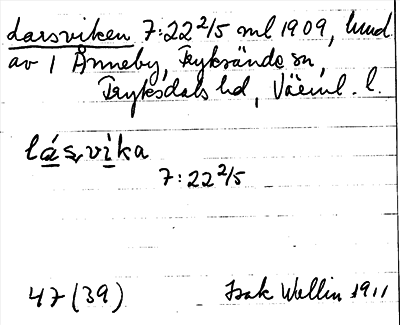 Larsviken 7:22 2/5 ml 1909, hmd
av 1 Ånneby, Fryksände sn,
Fryksdals hd, Värml. l.
lásvika
7:22 2/5
47 (39)
Isak Wellin 1911